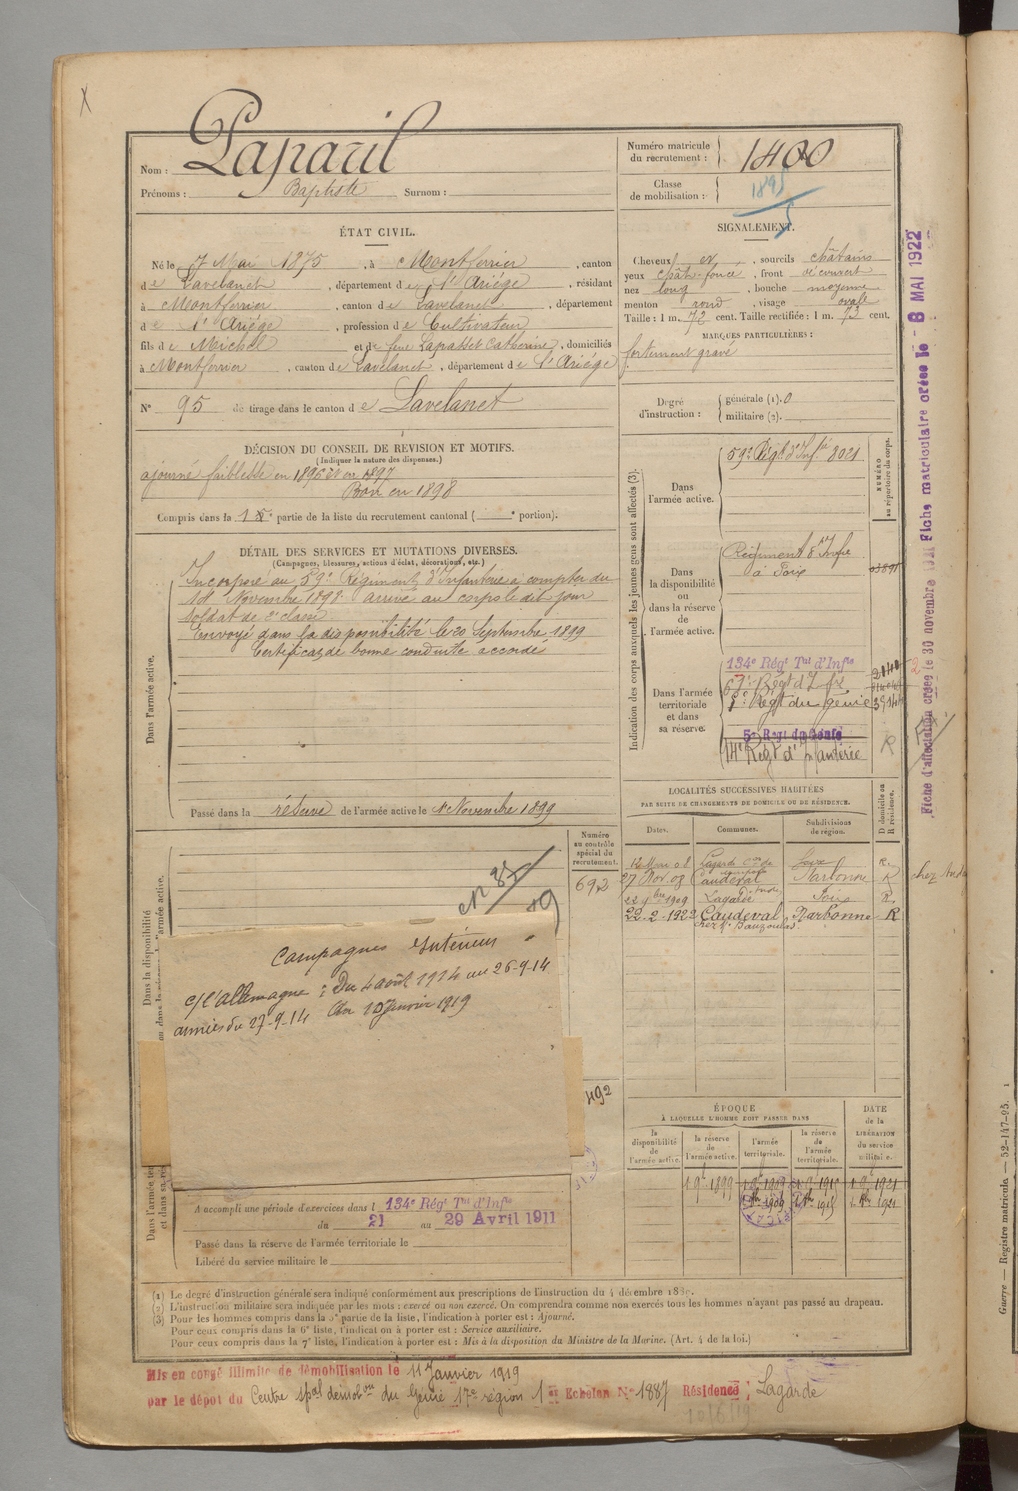 X
Nom : Laparil
Prénoms : Baptiste Surnom :
Numéro matricule du recrutement : 1400
Classe de mobilisation : 1895
ÉTAT CIVIL.
Né le 7 Mai 1875, à Montferrier, canton
de Lavelanet, département de l'Ariége, résidant
à Montferrier, canton de Lavelanet, département
de l'Ariége, profession de Cultivateur
fils de Michel et de feue Lapasset Catherine, domiciliés
à Montferrier, canton de Lavelanet, département de l'Ariége
N° 95 de tirage dans le canton de Lavelanet
SIGNALEMENT.
Cheveux et, sourcils châtains
yeux chât-foncé, front découvert
nez long, bouche moyenne
menton rond, visage ovale
Taille : 1 m. 72 cent. Taille rectifiée : 1 m. 73 cent.
MARQUES PARTICULIÈRES :
fortement gravé
Degré d'instruction : générale (1). 0
militaire (2).
DÉCISION DU CONSEIL DE RÉVISION ET MOTIFS.
(Indiquer la nature des dispenses.)
ajourné faiblesse en 1896 et en 1897
Bon en 1898
Compris dans la 1e partie de la liste du recrutement cantonal ( e portion).
DÉTAIL DES SERVICES ET MUTATIONS DIVERSES.
(Campagnes, blessures, actions d'éclat, décorations, etc.)
Dans l'armée active.
Incorporé au 59e Régiment d'Infanterie à compter du
14 Novembre 1898 arrivé au corps le dit jour
soldat de 2e classe
Envoyé dans la disponibilité le 20 Septembre 1899
Certificat de bonne conduite accordé
Passé dans la réserve de l'armée active le 1er Novembre 1899
Indication des corps auxquels les jeunes gens sont affectés (3)
NUMÉRO au répertoire du corps.
Dans l'armée active.
59e Régt d'Infie 8021
Dans la disponibilité ou dans la réserve de l'armée active.
Régiment d'Infie
à Foix
Dans l'armée territoriale et dans sa réserve.
134e Régt Tal d'Infie
67e Régt d'Infie
1e Régt du génie
5e Régt du Génie
14e Régt d'Infanterie
R
LOCALITÉS SUCCESSIVES HABITÉES
PAR SUITE DE CHANGEMENTS DE DOMICILE OU DE RÉSIDENCE.
Dates. Communes. Subdivisions de région. D domicile ou R résidence.
12 Mai 08 Lagarde Foix R.
27 Nov. 08 Caudeval Narbonne R
1909 Lagarde Foix R.
22-2-1922 Caudeval Narbonne R
Numéro au contrôle spécial du recrutement.
692
492
Campagnes Intérieur
c/l'Allemagne : Du 4 août 1914 au 26-9-14
armées du 27-9-14 Au 10 Janvier 1919
A accompli une période d'exercices dans l 134e Régt Tal d'Infie
du 21 au 29 Avril 1911
Passé dans la réserve de l'armée territoriale le
Libéré du service militaire le
ÉPOQUE
À LAQUELLE L'HOMME DOIT PASSER DANS
la disponibilité de l'armée active.
la réserve de l'armée active.
l'armée territoriale.
la réserve de l'armée territoriale.
DATE de la LIBÉRATION du service militaire.
(1) Le degré d'instruction générale sera indiqué conformément aux prescriptions de l'instruction du 4 décembre 1889.
(2) L'instruction militaire sera indiquée par les mots : exercé ou non exercé. On comprendra comme non exercés tous les hommes n'ayant pas passé au drapeau.
(3) Pour les hommes compris dans la 5e partie de la liste, l'indication à porter est : Ajourné.
Pour ceux compris dans la 6e liste, l'indication à porter est : Service auxiliaire.
Pour ceux compris dans la 7e liste, l'indication à porter est : Mis à la disposition du Ministre de la Marine. (Art. 4 de la loi.)
Mis en congé illimité de démobilisation le 11 Janvier 1919
par le dépôt du Centre spal démobon du Génie 17e région 1er Echelon N° 1887 Résidence : Lagarde
Fiche d'affectation créée le 30 novembre 1921 Fiche matriculaire créée le 8 MAI 1922
Guerre — Registre matricule. — 52-147-25.